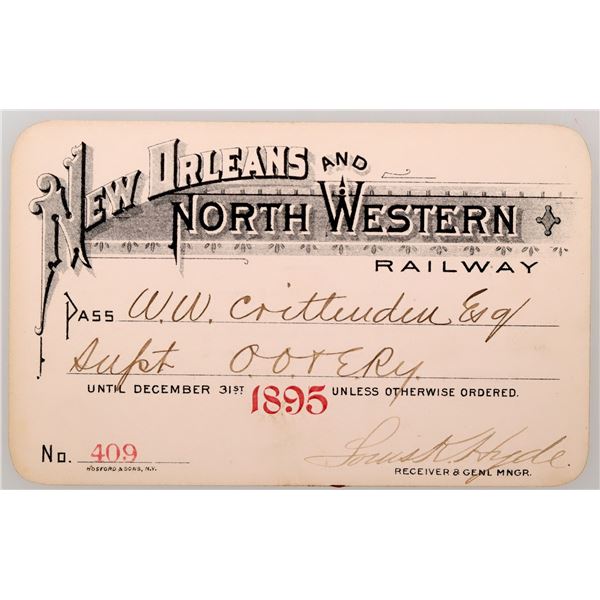 NEW ORLEANS AND
NORTH WESTERN
RAILWAY
PASS W.W. Crittenden Esq
Supt O.O. & E Ry.
UNTIL DECEMBER 31ST 1895 UNLESS OTHERWISE ORDERED.
No. 409
HOSFORD & SONS, N.Y.
Louis K. Hyde.
RECEIVER & GENL MNGR.